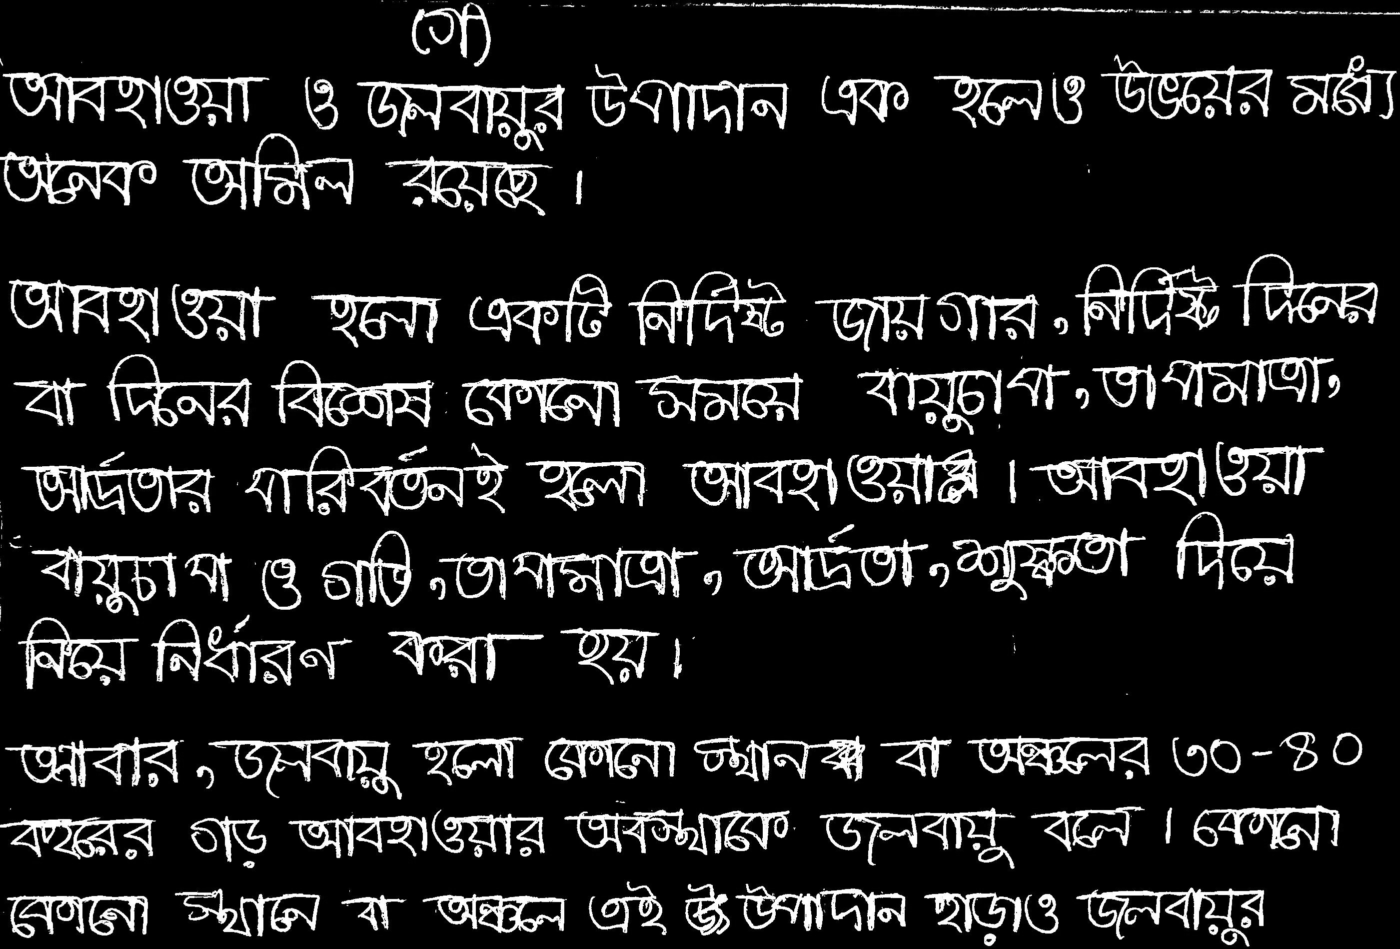 (গ)
আবহাওয়া ও জলবায়ুর উপাদান এক হলেও উভয়ের মধ্যে
অনেক অমিল রয়েছে।
আবহাওয়া হলো একটি নির্দিষ্ট জায়গার, নির্দিষ্ট দিনের
বা দিনের বিশেষ কোনো সময়ে বায়ুচাপ, তাপমাত্রা,
আর্দ্রতার পরিবর্তনই হলো আবহাওয়া। আবহাওয়া
বায়ুচাপ ও গতি, তাপমাত্রা, আর্দ্রতা, শুষ্কতা দিয়ে
নিয়ে নির্ধারণ করা হয়।
আবার, জলবায়ু হলো কোনো স্থান বা অঞ্চলের ৩০-৪০
বছরের গড় আবহাওয়ার অবস্থাকে জলবায়ু বলে। কোনো
কোনো স্থানে বা অঞ্চলে এই উপাদান ছাড়াও জলবায়ুর